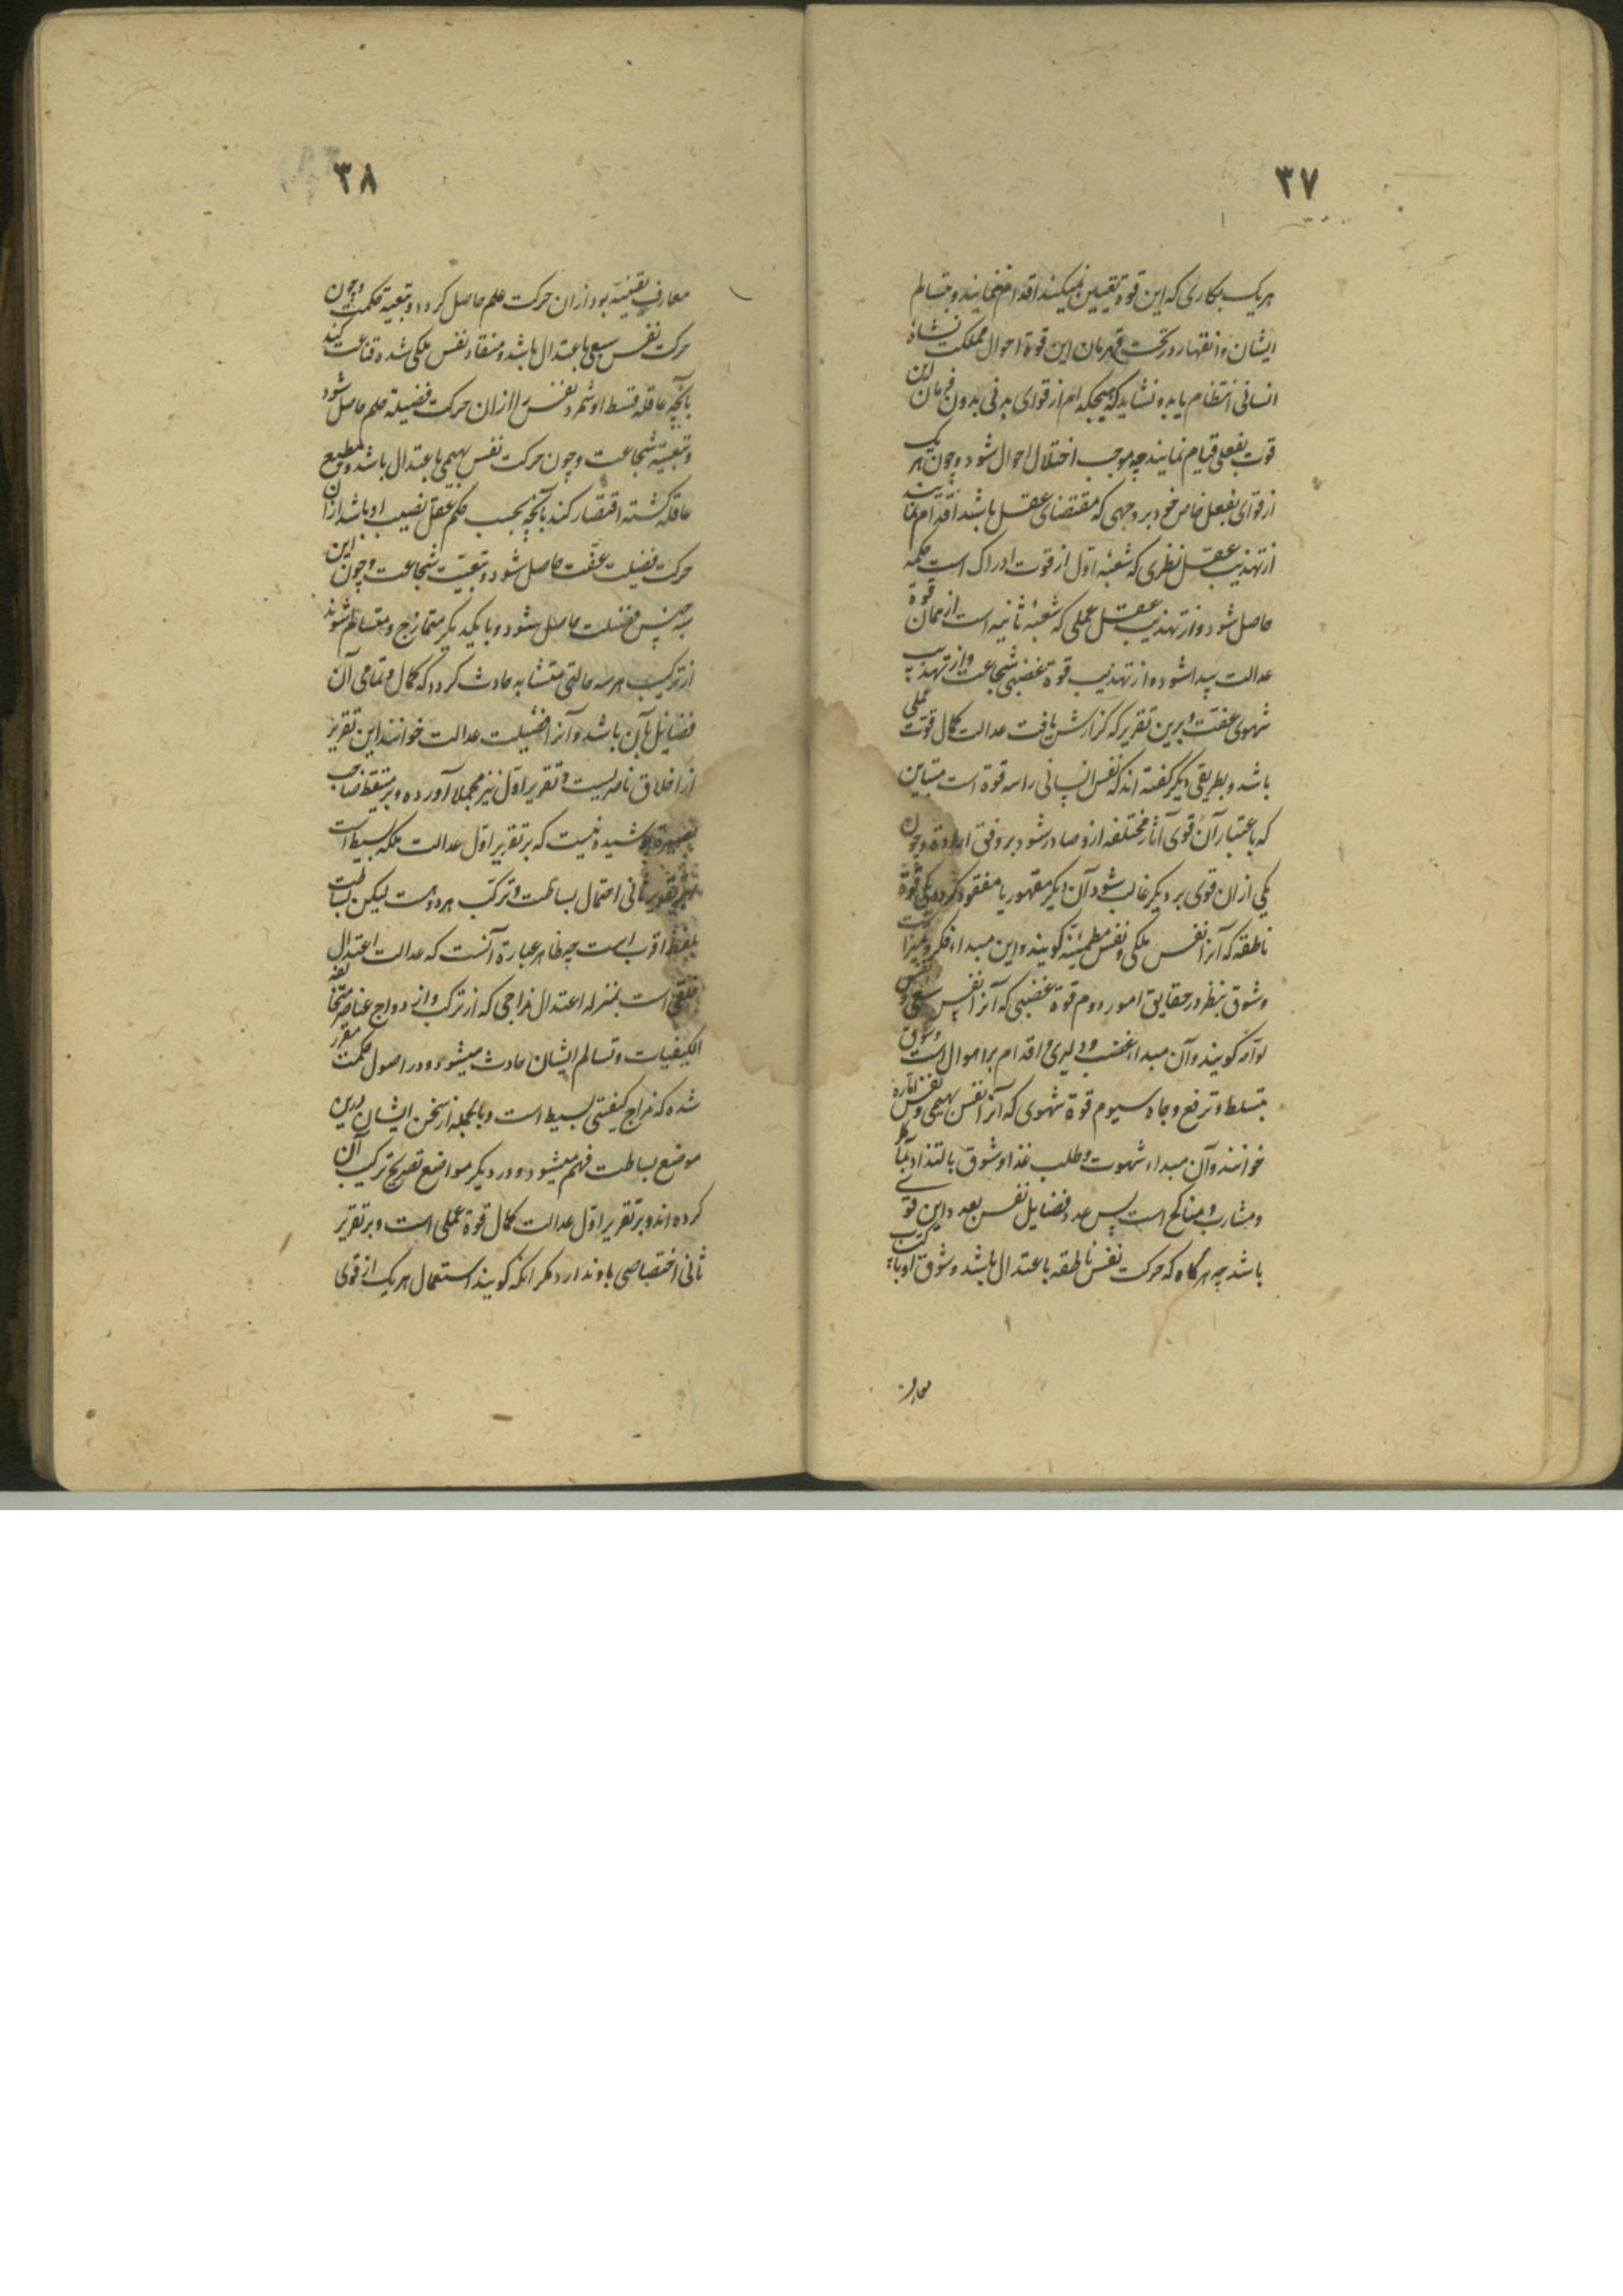 ۳۷
هریک بکاری که این قوة تعیین میکند اقدام مینمایند و بتسالم
ایشان و انقهار در تحت قهرمان این قوة احوال مملکت نشاهٔ
انسانی انتظام یابد و نشاید که هیچکدام از قوای بدنی بدون فرمان این
قوت بفعلی قیام نمایند چه موجب اختلال احوال شود و چون هر یک
از قوای بفعل خاص خود بر وجهی که مقتضای عقل باشد اقدام نمایند
از تهذیب عقل نظری که شعبهٔ اوّل از قوت ادراک است حکمة
حاصل شود و از تهذیب عقل عملی که شعبهٔ ثانیه است از همان قوة
عدالت پیدا شود و از تهذیب قوة غضبی شجاعت و از تهذیب
شهوی عفت و برین تقریر که گزارش یافت عدالت کمال قوت عملی
باشد و بطریقی دیگر گفته اند که نفس انسانی را سه قوة است متباین
که باعتبار آن قوی آثار مختلفه ازو صادر شود بر وفق اراده و چون
یکی ازان قوی بر دیگر غالب شود آن دیگر مقهور یا مفقود گردد یکی قوة
ناطقه که آنرا نفس ملکی و نفس مطمئنّه گویند و این مبداء فکر و تمیز است
و شوق بنظر در حقایق امور دوم قوة غضبی که آنرا نفس سبعی و نفس
لوّامه گویند و آن مبداء غضب و دلیری و اقدام بر اهوال است و شوق
بتسلط و ترفع و جاه سیوم قوة شهوی که آنرا نفس بهیمی و نفس اماره
خوانند و آن مبداء شهوت و طلب غذا و شوق بالتذاذ بمآکل
و مشارب و مناکح است پس عدد فضایل نفس بعدد این قوی
باشد چه هرگاه که حرکت نفس ناطقه باعتدال باشد و شوق او باکتساب
معارف
۳۸
معارف یقینیّه بود ازان حرکت علم حاصل گردد و بتبعیة حکمت و چون
حرکت نفس سبعی باعتدال باشد و منقاد نفس ملکی شده قناعت کند
بآنچه عاقله قسط او شمرد نفس را ازان حرکت فضیلة حلم حاصل شود
و بتبعیة شجاعت و چون حرکت نفس بهیمی باعتدال باشد و مطیع
عاقله گشته اقتصار کند بآنچه بحسب حکم عقل نصیب او باشد ازان
حرکت فضیلت عفّت حاصل شود و بتبعیّت شجاعت و چون این
سه جنس فضیلت حاصل شود و با یکدیگر متمازج و متسالم شوند
از ترکیب هر سه حالتی متشابه حادث گردد که کمال و تمامی آن
فضایل بآن باشد و آنرا فضیلت عدالت خوانند این تقریر
از اخلاق ناصریست و تقریر اوّل نیز مجملا آورده و بر متیقظ صاحب
بصیرة پوشیده نیست که بر تقریر اوّل عدالت ملکهٔ بسیط است
و بر تقریر ثانی احتمال بساطت و ترکّب هر دو هست لیکن بساطت
بلفظ اقرب است چه ظاهر عبارة آنست که عدالت اعتدال
خلقی است بمنزله اعتدال مزاجی که از ترکب و ازدواج عناصر متخالفه
الکیفیات و تسالم ایشان حادث میشود و در اصول حکمت مقرر
شده که مزاج کیفیتی بسیط است و بالجمله از سخن ایشان درین
موضع بساطت فهم میشود و در دیگر مواضع تصریح بترکیب آن
کرده اند و بر تقریر اوّل عدالت کمال قوة عملی است و بر تقریر
ثانی اختصاصی باو ندارد مگر انکه گویند استعمال هر یک از قوی